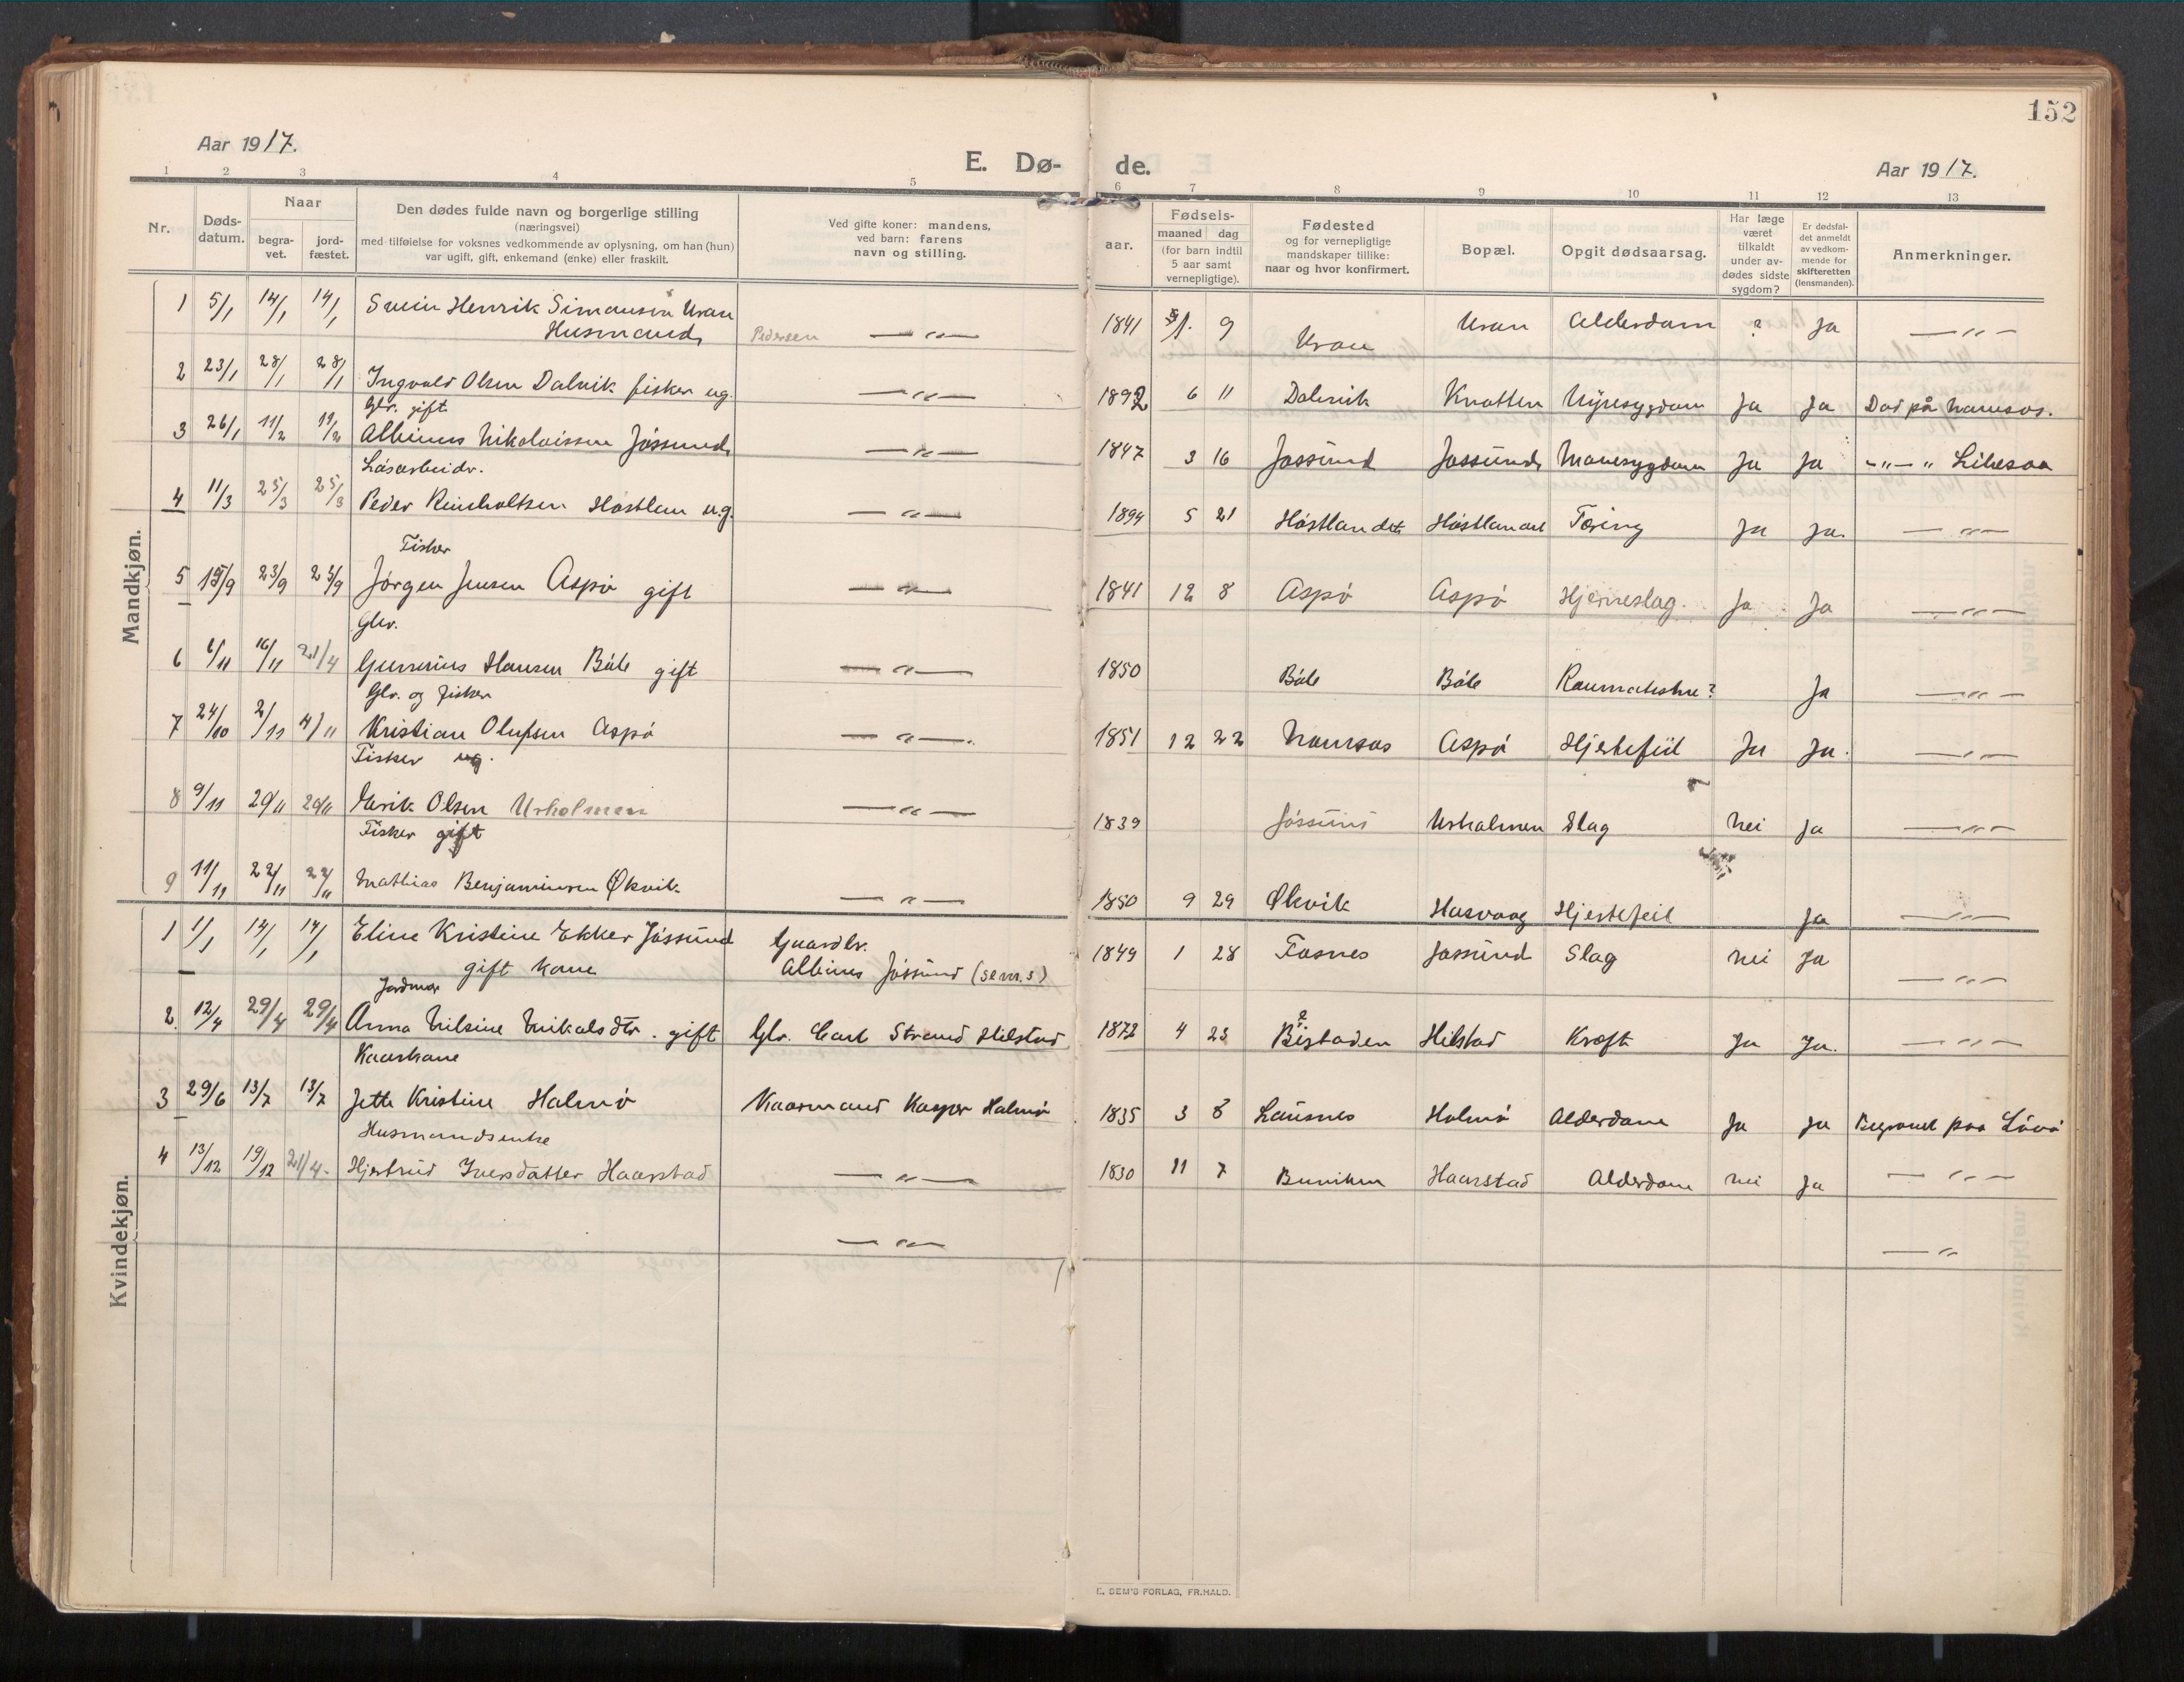 152
Aar 1917.
E. Dø-
de.
Aar 1917.
1 2 3 4 5 6 7 8 9 10 11 12 13
Nr.
Døds-
datum.
Naar
begra-
vet.
jord-
fæstet.
Den dødes fulde navn og borgerlige stilling
(næringsvei)
med tilføielse for voksnes vedkommende av oplysning, om han (hun)
var ugift, gift, enkemand (enke) eller fraskilt.
Ved gifte koner: mandens,
ved barn: farens
navn og stilling.
aar.
Fødsels-
maaned dag
(for barn indtil
5 aar samt
vernepligtige).
Fødested
og for vernepligtige
mandskaper tillike:
naar og hvor konfirmert.
Bopæl.
Opgit dødsaarsag.
Har læge
været
tilkaldt
under av-
dødes sidste
sygdom?
Er dødsfal-
det anmeldt
av vedkom-
mende for
skifteretten
(lensmanden).
Anmerkninger.
Mandkjøn.
1 5/1 14/1 14/1 Svein Henrik Simonsen Uran
Husmand Pedersen — " — 1841 1. 9 Uran Uran Alderdom ? Ja — " —
2 23/1 28/1 28/1 Ingvald Olsen Dalvik fisker ug. — " — 1892 6 11 Dalvik Knotten Nyresygdom Ja Ja Död på Namsos.
Gbr. gift
3 26/1 11/2 11/2 Albinus Nikolaissen Jössund — " — 1847 3 16 Jössund Jössund Mavesygdom Ja Ja - " - "
Lösarbeidr.
4 11/3 25/3 25/3 Peder Reinholtsen Höstlan ug. — " — 1894 5 21 Höstlandet Höstlandet Tæring Ja Ja. — " —
Fisker
5 15/9 23/9 23/9 Jörgen Jensen Aspö gift — " — 1841 12 8 Aspö Aspö Hjerneslag. Ja Ja — " —
Gbr.
6 6/11 16/11 21/4 Gunerius Hansen Böle gift — " — 1850 Böle Böle Raumatisme? Ja — " —
Gbr. og fisker
7 24/10 2/11 4/11 Kristian Olufsen Aspö — " — 1851 12 22 Namsos Aspö Hjertefeil Ja Ja. — " —
Fisker ug.
8 9/11 20/11 20/11 Erik Olsen Urholmen — " — 1839 Jössund Urholmen Slag Nei Ja — " —
Fisker gift
9 11/11 22/11 22/11 Mathias Benjaminsen Økvik — " — 1850 9 29 Økvik Hasvaag Hjertefeil Ja — " —
Kvindekjøn.
1 1/1 14/1 14/1 Eline Kristine Ekker Jössund Gaardbr. 1849 1 28 Fosnes Jössund Slag Nei Ja — " —
gift kone Albinus Jössund (se nr. 3)
Jordmor
2. 12/4 29/4 29/4 Anna Nilsine Nikolsdtr. gift Gbr. Carl Strand Hilstad 1872 4 23 Bistaden Hilstad Kræft Ja Ja. — " —
Kaarkone
3 29/6 13/7 13/7 Jette Kristine Halmö Kaarmand Kasper Halmö 1835 3 8 Lausnes Halmö Alderdom Ja Ja Begravet paa Lövö
Husmandsenke
4 13/12 19/12 21/4 - Hjertrud Iversdatter Haarstad — " — 1830 11 7 Haarstad Alderdom nei Ja — " —
— " — — "
E. SEM'S FORLAG, FR.HALD.